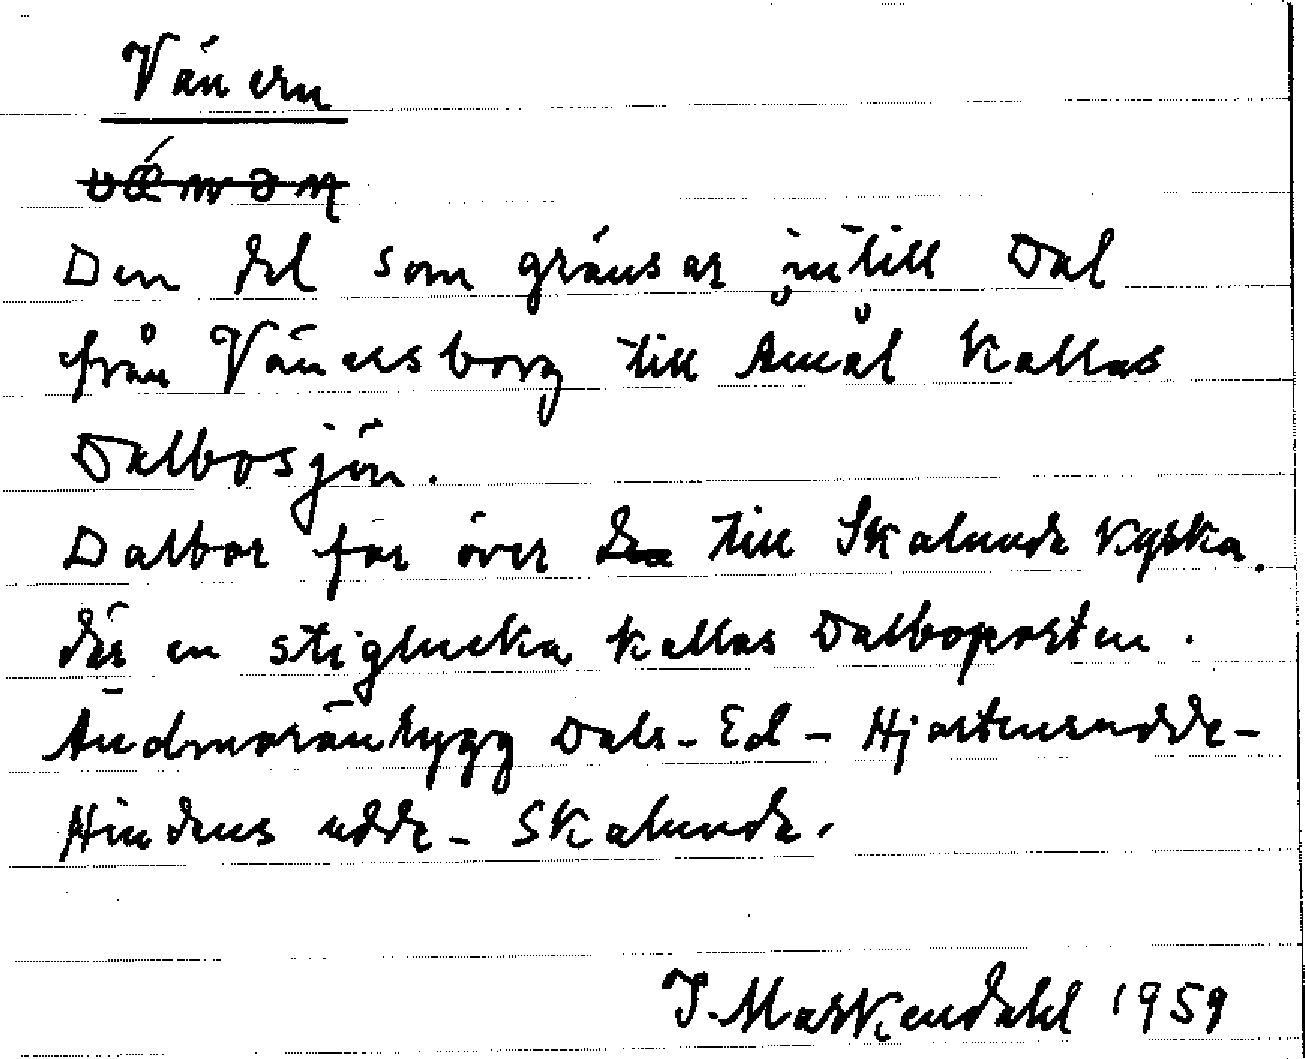 Vänern
Den del som gränsar intill Dal
från Vänersborg till Åmål kallas
Dalbosjön.
Dalbor far över till Skalunda kyrka.
där en stiglucka kallas Dalboporten.
Ändmoränrygg Dals-Ed - Hjortensudde-
Hindens udde - Skalunda.
I. Markendahl 1959